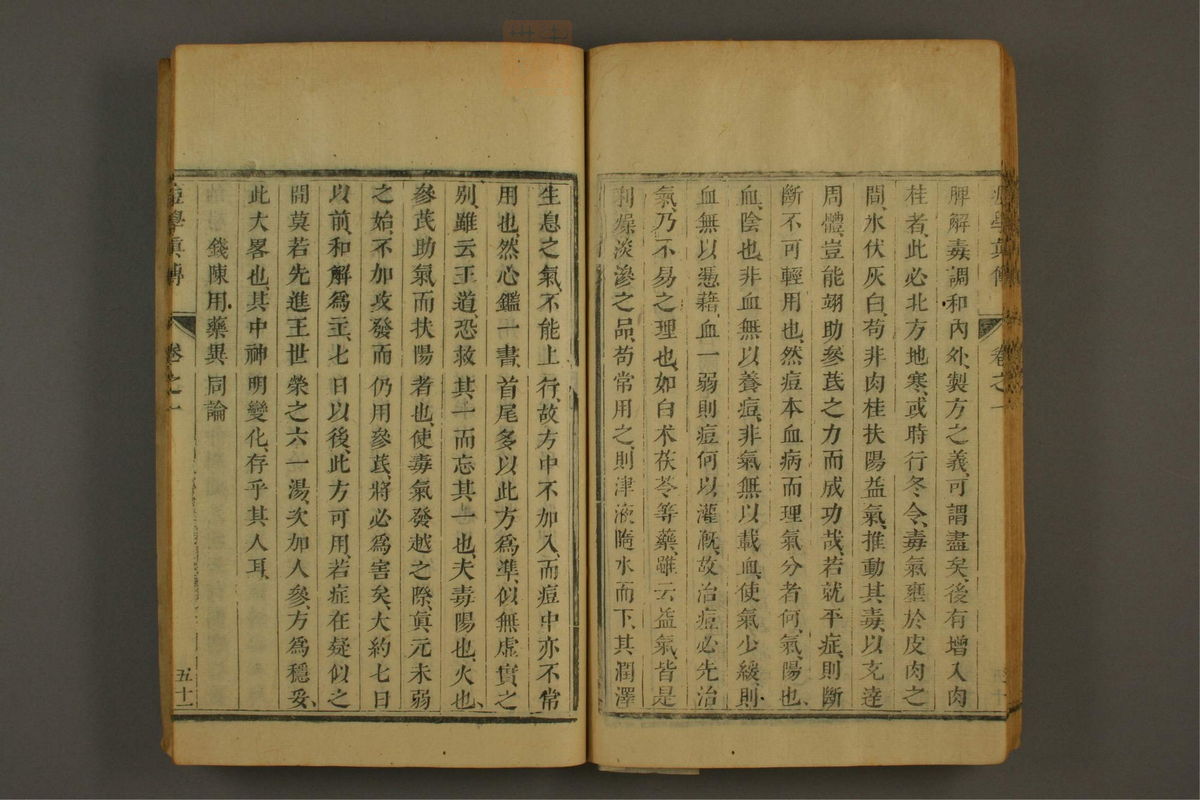 痘學真傳 卷之一
脾解毒調和內外製方之義可謂盡矣後有增入肉
桂者此必北方地寒或時行冬令毒氣壅於皮肉之
間氷伏灰白苟非肉桂扶陽益氣推動其毒以充達
周體豈能翊助參芪之力而成功哉若就平症則斷
斷不可輕用也然痘本血病而理氣分者何氣陽也
血陰也非血無以養痘非氣無以載血使氣少緩則
血無以憑藉血一弱則痘何以灌漑故治痘必先治
氣乃不易之理也如白术茯苓等藥雖云益氣皆是
利燥淡滲之品苟常用之則津液隨水而下其潤澤
生息之氣不能上行故方中不加入而痘中亦不常
用也然心鑑一書首尾多以此方為準似無虛實之
別雖云王道恐救其一而忘其一也夫毒陽也火也
參芪助氣而扶陽者也使毒氣發越之際真元未弱
之始不加攻發而仍用參芪將必為害矣大約七日
以前和解為主七日以後此方可用若症在疑似之
間莫若先進王世榮之六一湯次加人參方為穩妥
此大畧也其中神明變化存乎其人耳
錢陳用藥異同論
痘學真傳 卷之一 五十一